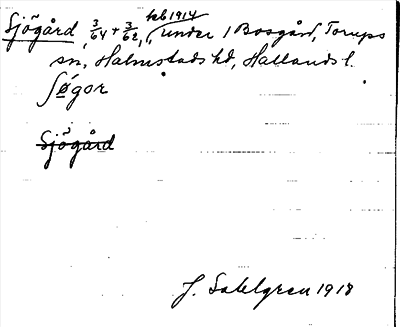 jkb 1914
Sjögård, 3/64 + 3/62, "under 1 Bosgård, Torups
sn, Halmstads hd, Hallands l.
ʃǿgor
Sjögård
J. Sahlgren 1918